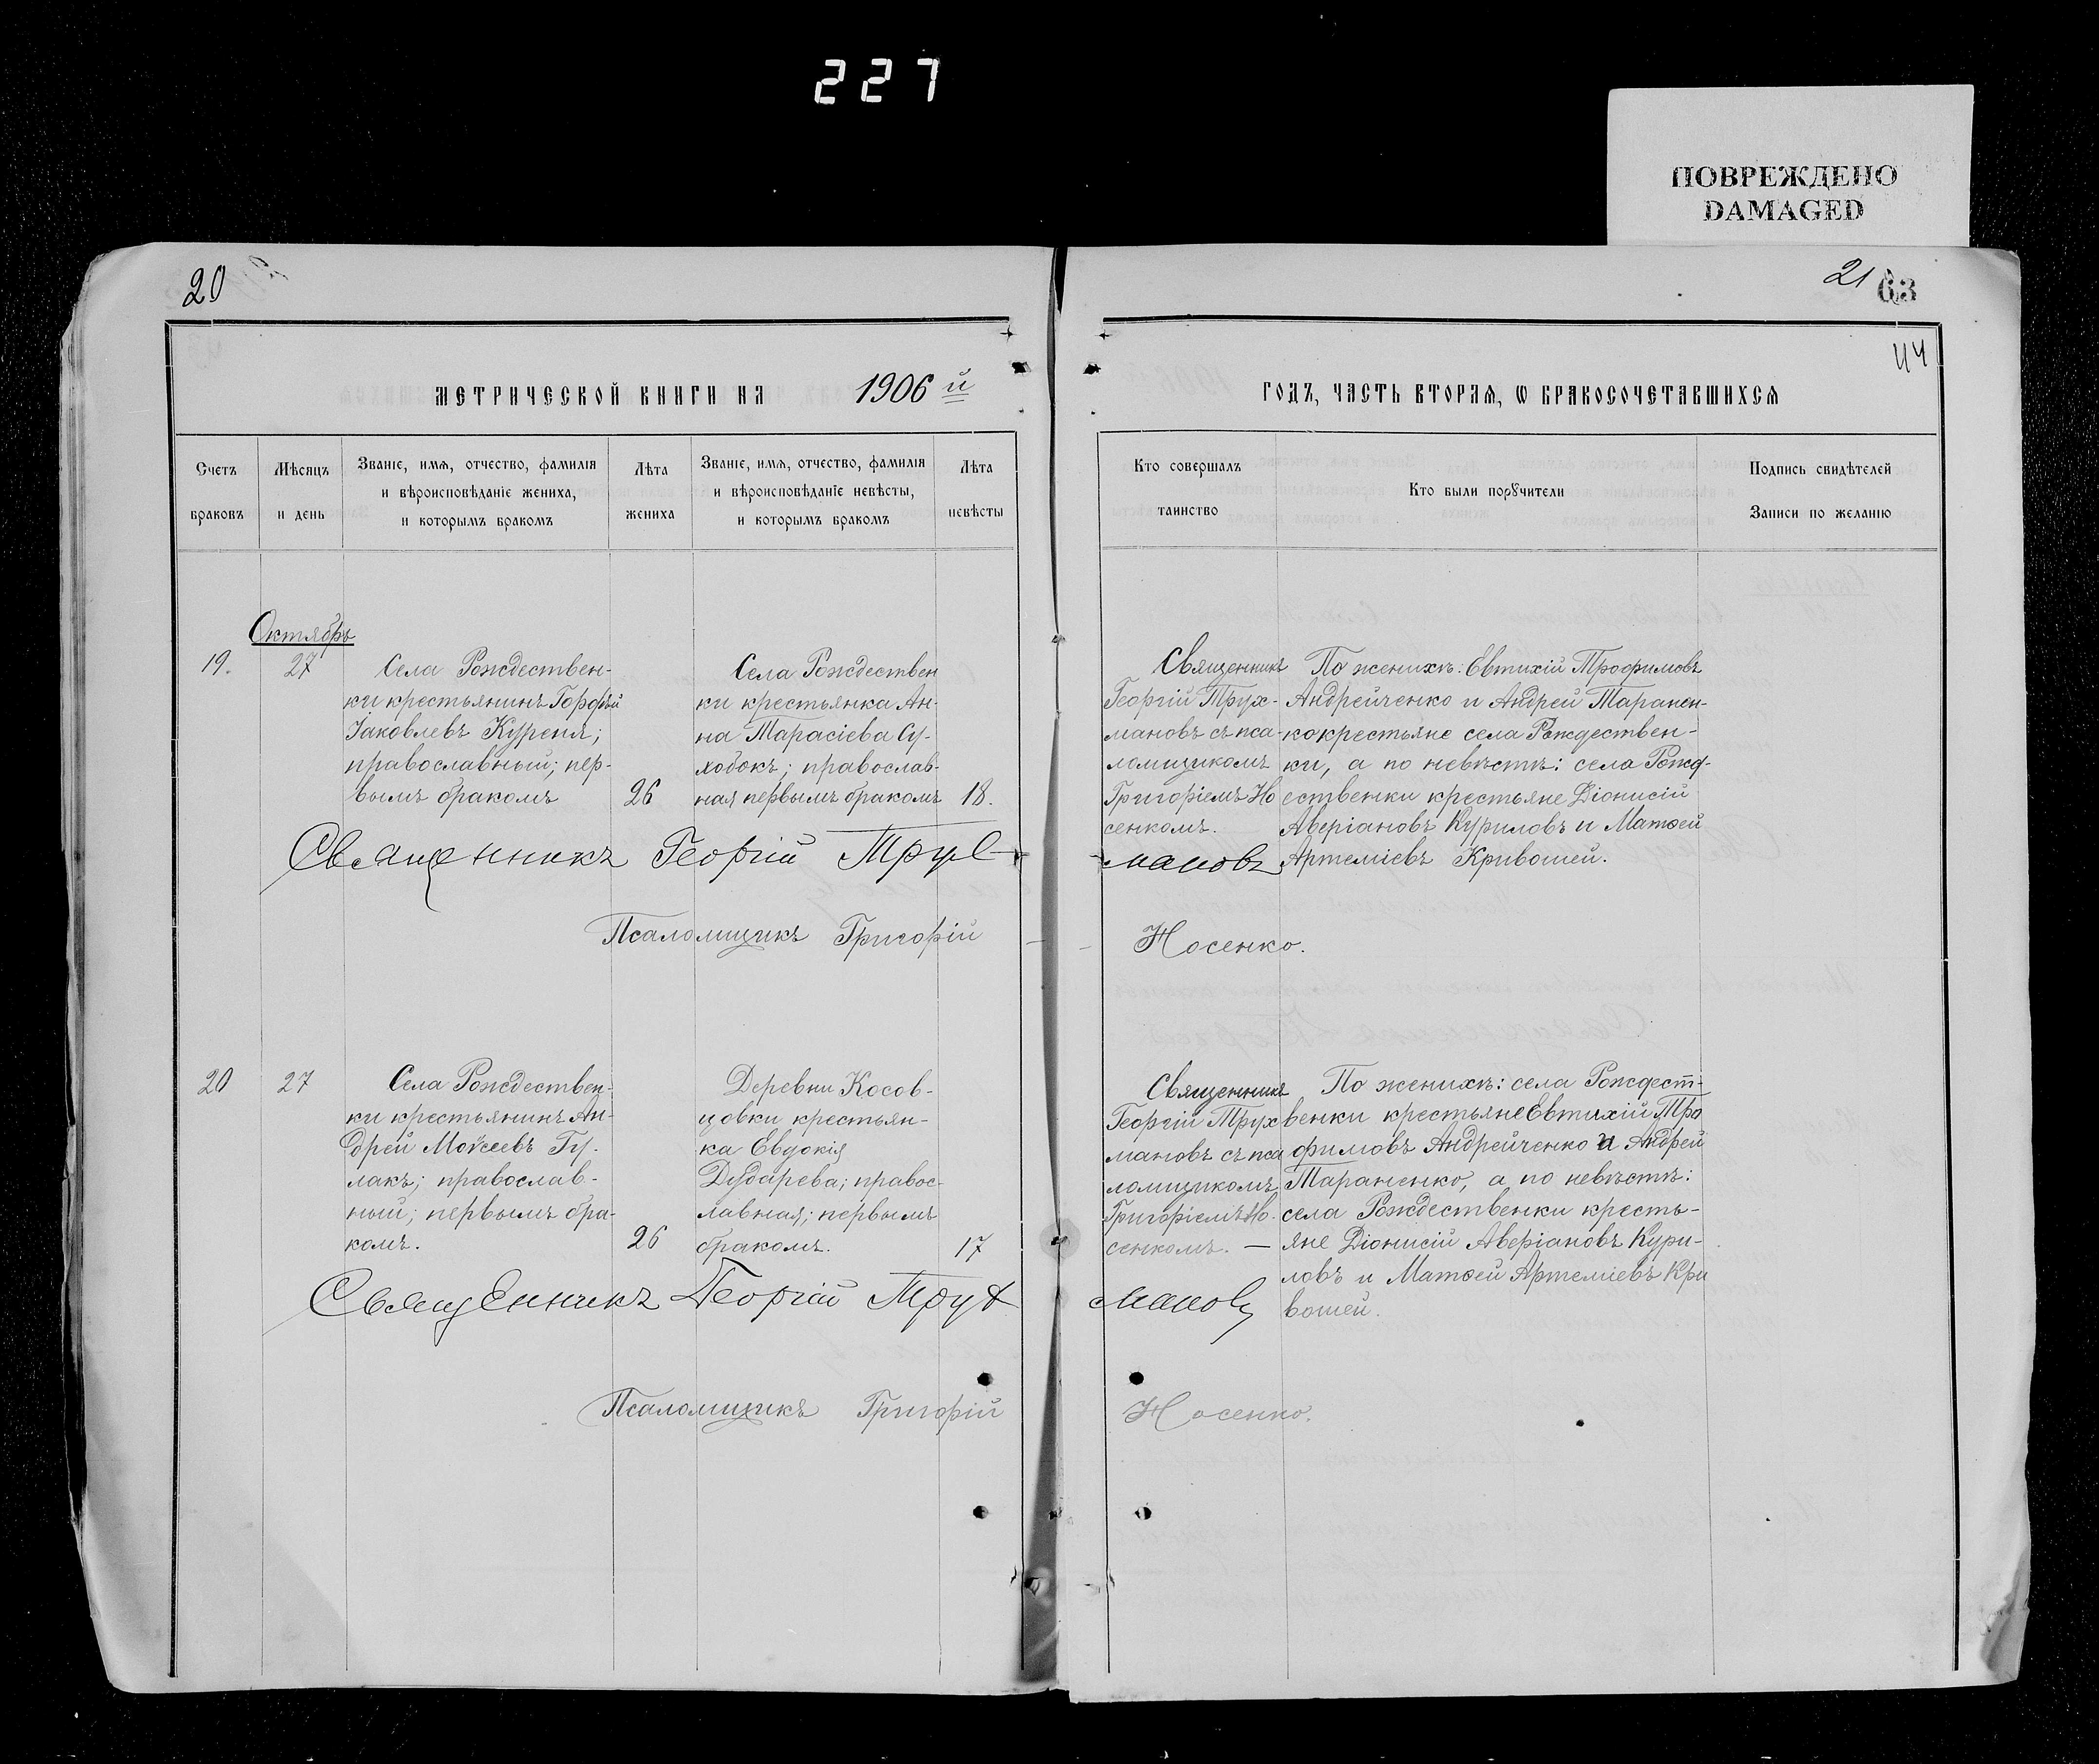 227
ПОВРЕЖДЕНО
DAMAGED
20
21
63
44
МЕТРИЧЕСКОЙ КНИГИ НА 1906 й
ГОДЪ, ЧАСТЬ ВТОРАЯ, Ѡ БРАКОСОЧЕТАВШИХСЯ
Счетъ
браковъ
Мѣсяцъ
и день
Званіе, имя, отчество, фамилія
и вѣроисповѣданіе жениха,
и которымъ бракомъ
Лѣта
жениха
Званіе, имя, отчество, фамилія
и вѣроисповѣданіе невѣсты,
и которымъ бракомъ
Лѣта
невѣсты
Кто совершалъ
таинство
Кто были порꙋчители
Подпись свидѣтелей
Записи по желанію
Октябрь
19.
27
Села Рождествен-
ки крестьянинъ Гордѣй
Іаковлевъ Куреня;
православный; пер-
вымъ бракомъ
26
Села Рождествен
ки крестьянка Ан-
на Тарасіева Су-
ходокъ; православ-
ная первымъ бракомъ
18.
Священникъ
Георгій Трух-
мановъ съ пса-
ломщикомъ
Григоріемъ Но
сенкомъ.
По женихѣ: Евтихій Трофимовъ
Андрейченко и Андрей Таранен-
ко крестьяне села Рождествен-
ки, а по невѣстѣ: села Рожд-
ественки крестьяне Діонисій
Аверіановъ Куриловъ и Матѳей
Артеміевъ Кривошей.
Священникъ Георгій Трух-
мановъ
Псаломщикъ Григорій
Носенко.
20
27
Села Рождествен-
ки крестьянинъ Ан-
дрей Моѵсеевъ Гу-
лакъ; православ-
ный; первымъ бра-
комъ.
26
Деревни Косов-
цовки крестьян-
ка Евдокія
Дударева; правос-
лавная; первымъ
бракомъ.
17
Священникъ
Георгій Трух
мановъ съ пса
ломщикомъ
Григоріемъ Но-
сенкомъ. —
По женихѣ: села Рождест-
венки крестьяне Евтихій Тро
фимовъ Андрейченко и Андрей
Тараненко, а по невѣстѣ:
села Рождественки кресть-
яне Діонисій Аверіановъ Кури-
ловъ и Матѳей Артеміевъ Кри
вошей.
Священникъ Георгій Трух
мановъ
Псаломщикъ Григорій
Носенко.